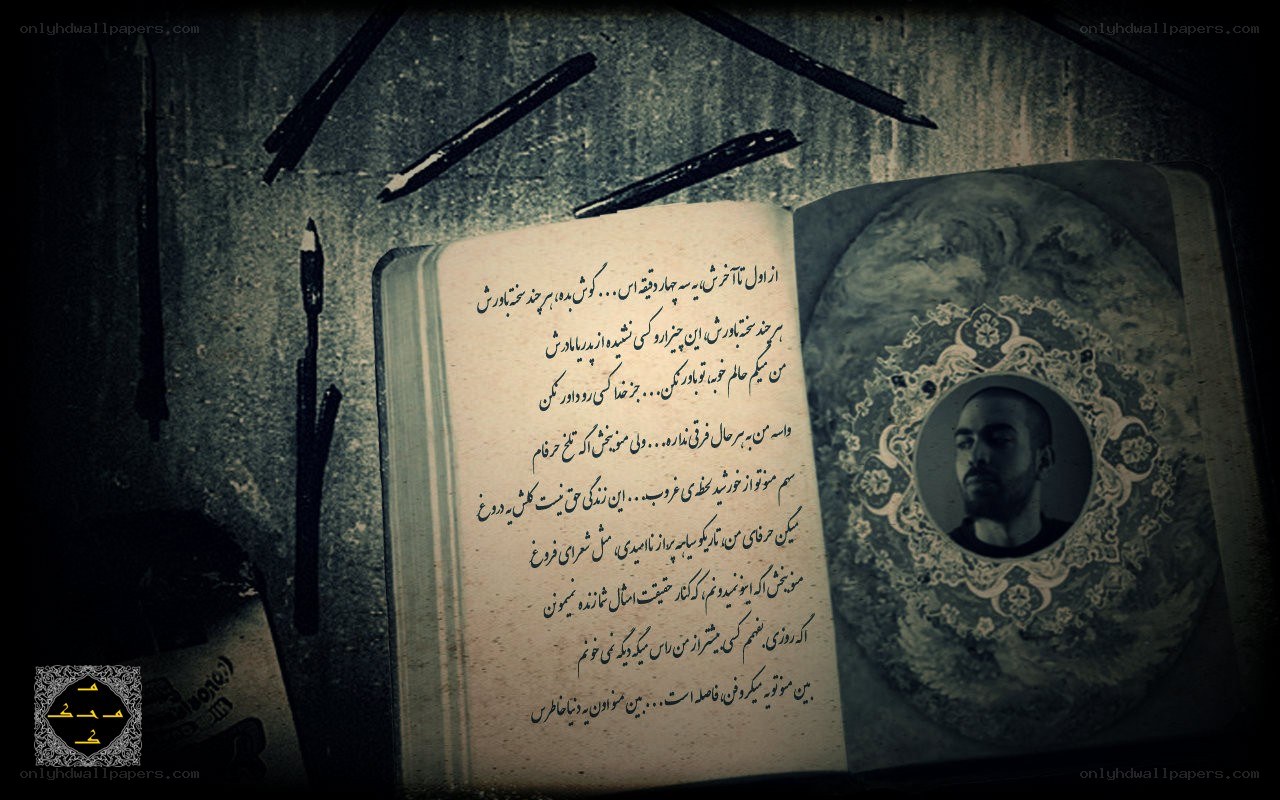 onlyhdwallpapers.com
onlyhdwallpapers.com
از اول تا آخرش، یه سه چهار دقیقه اس... گوش بده، هر چند سخته باورش
هر چند سخته باورش، این چیزارو کسی نشنیده از پدر یا مادرش
من میگم حالم خوبه، تو باور نکن... جز خدا کسی رو داور نکن
واسه من به هر حال فرقی نداره... ولی منو ببخش اگه تلخ حرفام
سهم منو تو از خورشید لحظه ی غروب... این زندگی حق نیست کلش یه دروغ
میگن حرفای من، تاریکو سیاهه پر از ناامیدی، مثل شعرای فروغ
منو ببخش اگه اینو نمیدونم، که کنار حقیقت امثال شما زنده نمیمونن
اگه روزی بفهمم کسی بیشتر از من راس میگه دیگه نمی خونم
بین منو تو یه میکروفن، فاصله است... بین منو اون یه دنیا خاطرس
onlyhdwallpapers.com
onlyhdwallpapers.com